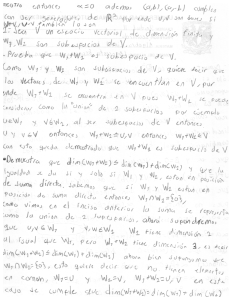 entonces α=0 ademas (a,b), (b,-b) cumplen
con ser generadores de R² por ende v₁,v₂ son bases si
v₁,v₂ también lo son
1. Sea V un espacio vectorial de dimensión finita y
W₁, W₂ son subespacios de V.
-Pruebe que W₁+W₂ es subespacio de V.
Como W₁ y W₂ son subespacios de V, quiere decir que
los vectores de W₁ y W₂ se encuentran en V, por
ende W₁+W₂ se encuentra en V pues W₁+W₂ se puede
considerar como la "unión" de 2 subespacios. Por ejemplo
u∈W₁ y v∈W₂, al ser subespacio de V entonces
u y v∈V entonces W₁+W₂=u,v entonces W₁+W₂∈V
con esto queda demostrado que W₁+W₂ es subespacio de V
•Demuestra que dim(W₁+W₂)≤dim(W₁)+dim(W₂) y que la
igualdad se da si y solo si W₁ y W₂, están en posición
de suma directa, sabemos que si W₁ y W₂ están en
posición de suma directa entonces W₁∩W₂={0},
como vimos en el inciso anterior la suma se representa
como la unión de 2 subespacios, ahora supondremos
que u,v∈W₁ y v,w∈W₂ W₁ tiene dimensión 2
al igual que W₂, pero W₁+W₂ tiene dimensión 3, es decir
dim(W₁+W₂)=dim(W₁)+dim(W₂), ahora bien supongamos que
W₁∩W₂={0}, esto quiere decir que no tienen elementos
en común, W₁=U y W₂=V, W₁+W₂=U,V en este
caso se cumple que dim(W₁+W₂)=dim(W₁)+dim(W₂)